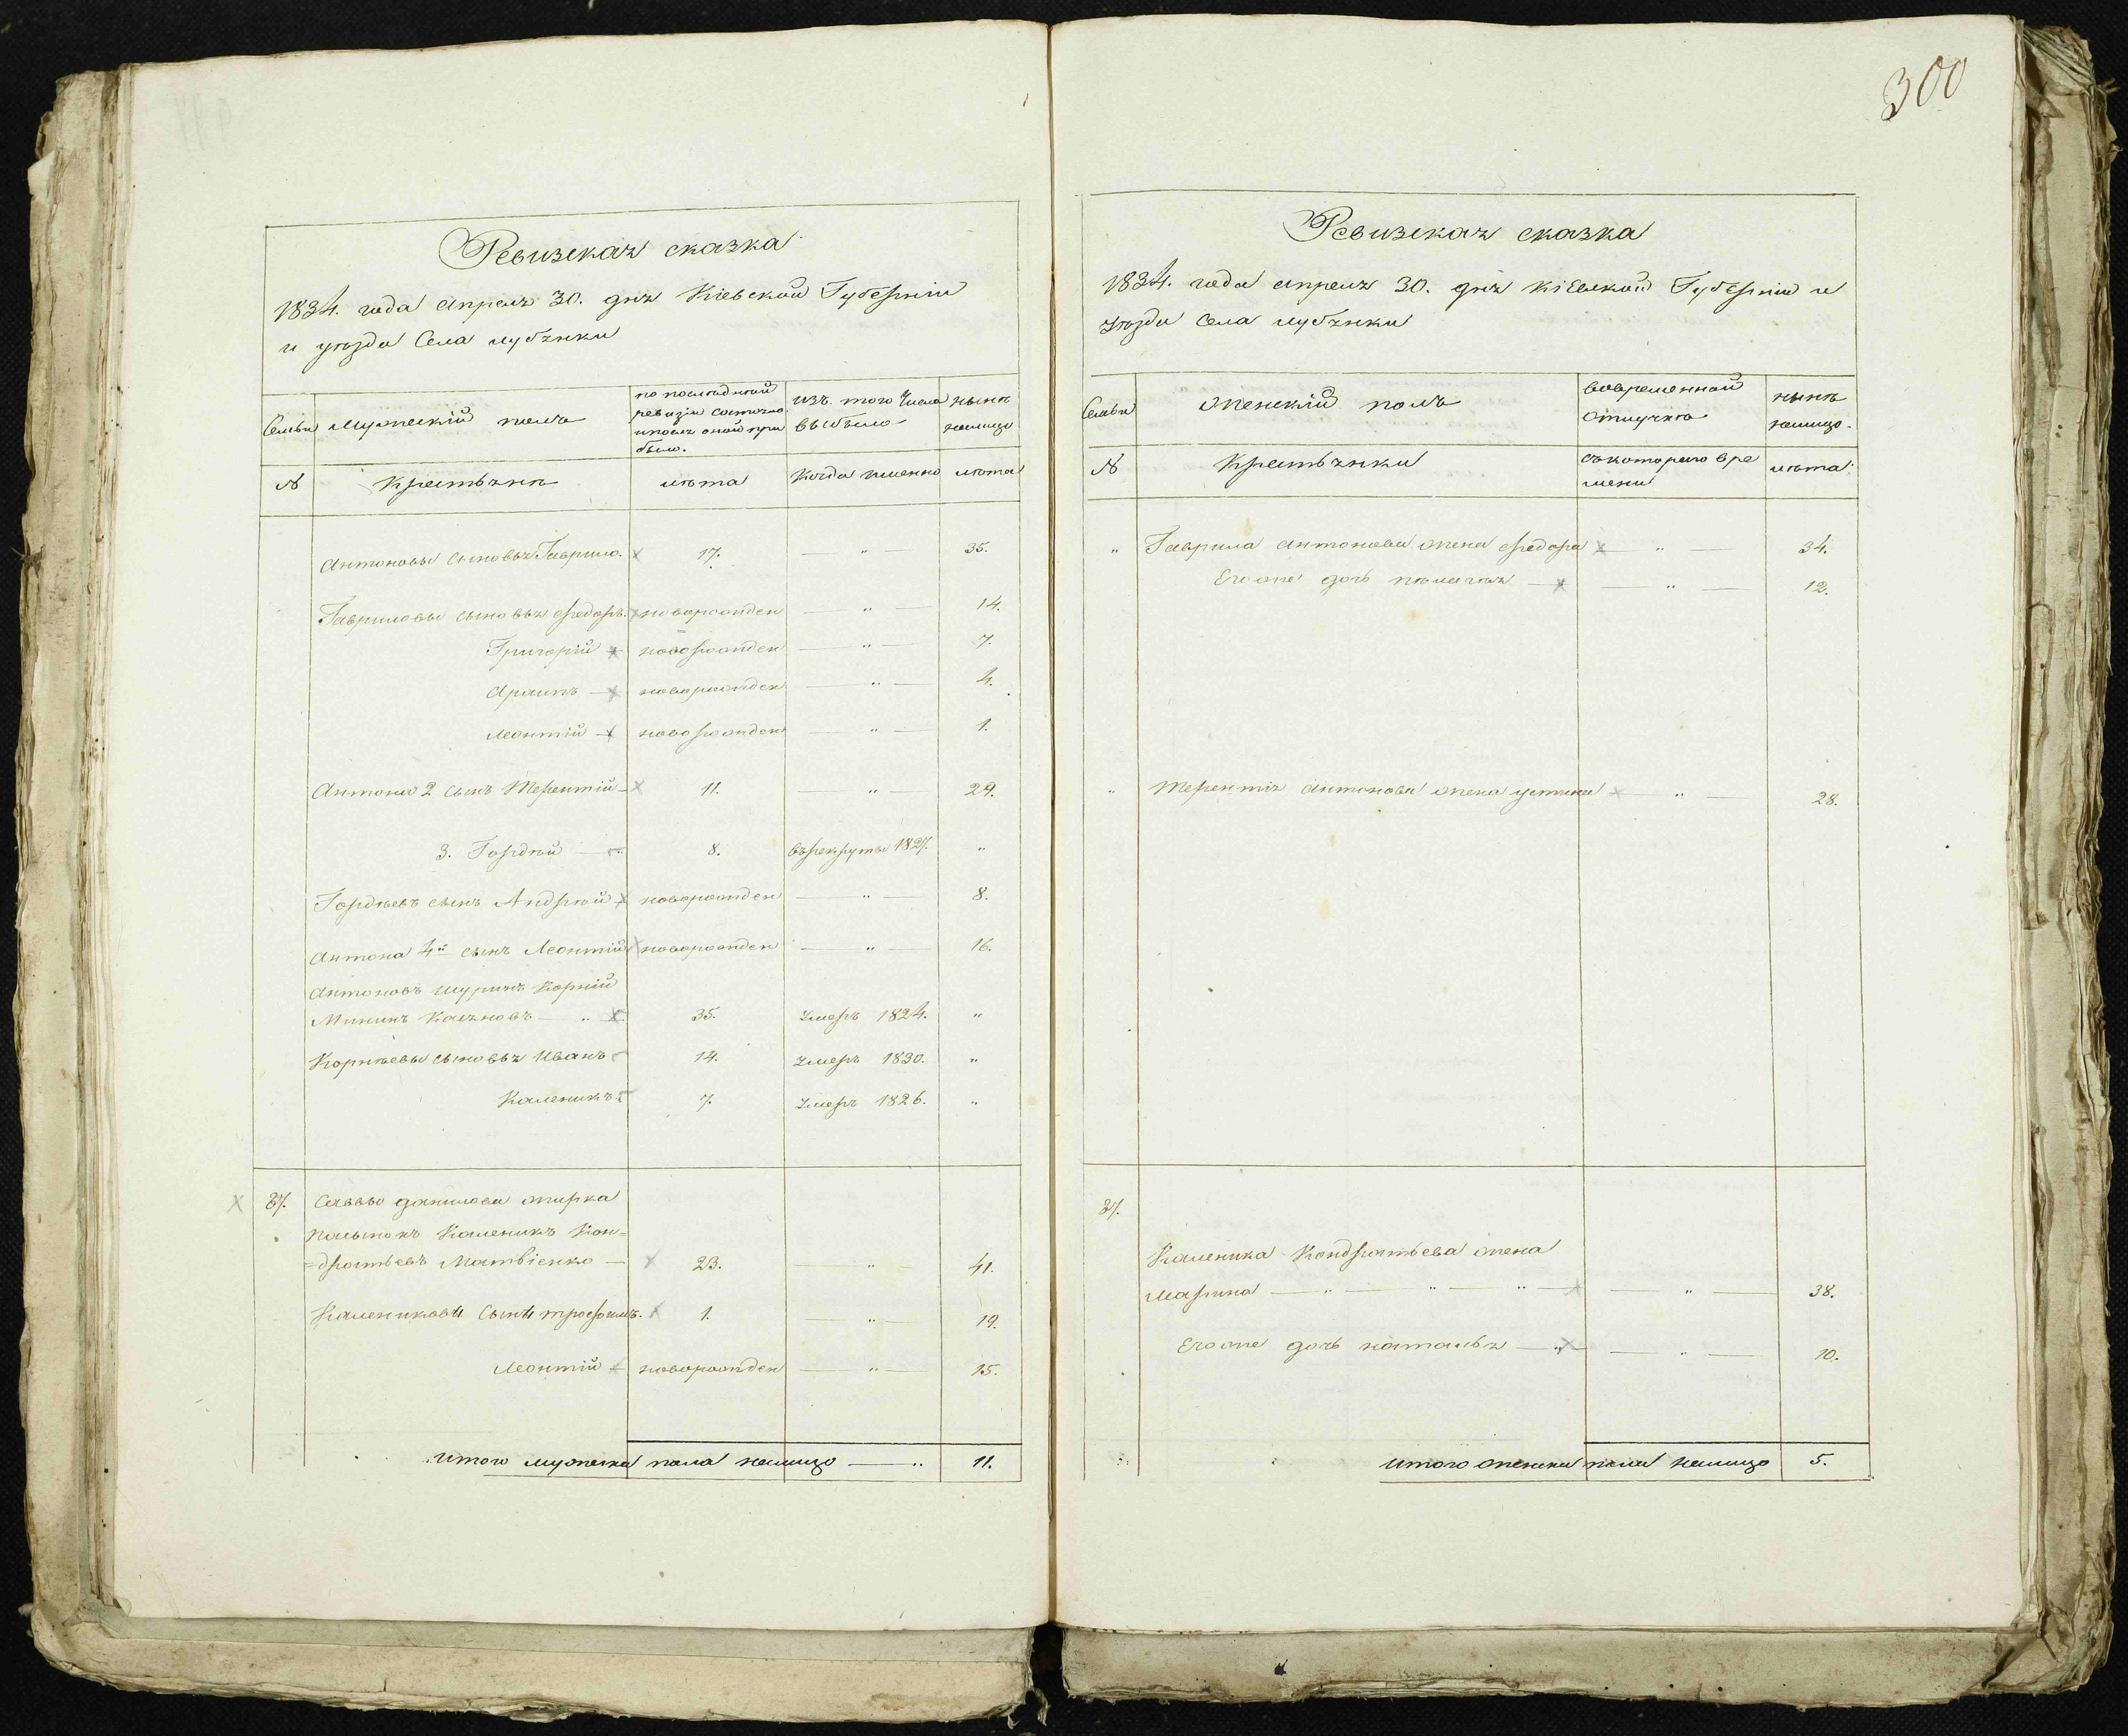 Ревизская сказка
1834. года апреля 30. дня Кіевской Губерніи
и уезда Села лубянки
Семьи
Мужескій полъ
по последней
ревизіи состояло
и после оной при
было.
изъ того числа
выбыло
ныне
налицо
№
Крестьяне
лета
когда именно
лета
Антоновы сыновья Гаврило. 17. — „ — 35.
Гавриловы сыновья Федоръ. новорожден — „ — 14.
Григорій новорожден — „ — 7.
новорожден — „ — 4.
Леонтій новорожден — „ — 1.
Антона 2 сынъ Терентій 11. — „ — 29.
3. Гордей — 8. въ рекруты 1827. „
Гордеевъ сынъ Андрей новорожден — „ — 8.
Антона 4й сынъ Леонтій новорожден — „ — 16.
Антоновъ шуринъ Корній
35. умеръ 1824. „
Корнеевы сыновья Иванъ 14. умеръ 1830. „
Каленикъ 7. умеръ 1826. „
37. Саввы данилова жирка
Каленикъ Кон=
=дратьевъ Матвіенко — 23. — „ — 41.
Калениковы Сыны трофимъ. 1. — „ — 19.
Леонтій новорожден — „ — 15.
итого мужеска пола налицо — „ 11.
300
Ревизская сказка
1834. года апреля 30. дня Кіевской Губерніи и
уезда Села лубянки
Семьи
женскій полъ
вовременной
отлучке
ныне
налицо.
№
Крестьянки
съ котораго вре
мени
лета
„ Гаврила антонова жена федора — „ — 34.
Его же дочь пелагея — — „ — 12.
„ Терентія антонова жена устина — „ — 28.
37.
Каленика Кондратьева жена
Марина — „ — „ — „ — „ — 38.
Его же дочь наталья — „ — — „ — 10.
итого женска пола налицо 5.